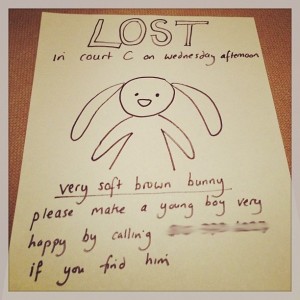 LOST
In court C on wednesday afternoon
very soft brown bunny
please make a young boy very
happy by calling
if you find him